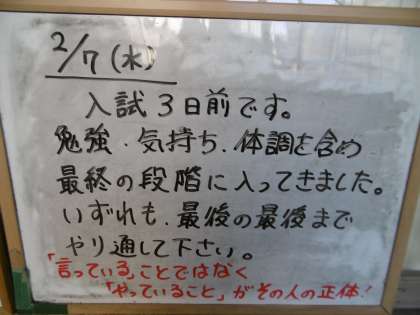 2/7(水)
入試3日前です。
勉強・気持ち、体調を含め
最終の段階に入ってきました。
いずれも、最後の最後まで
やり通して下さい。
「言っている」ことではなく
「やっていること」がその人の正体!